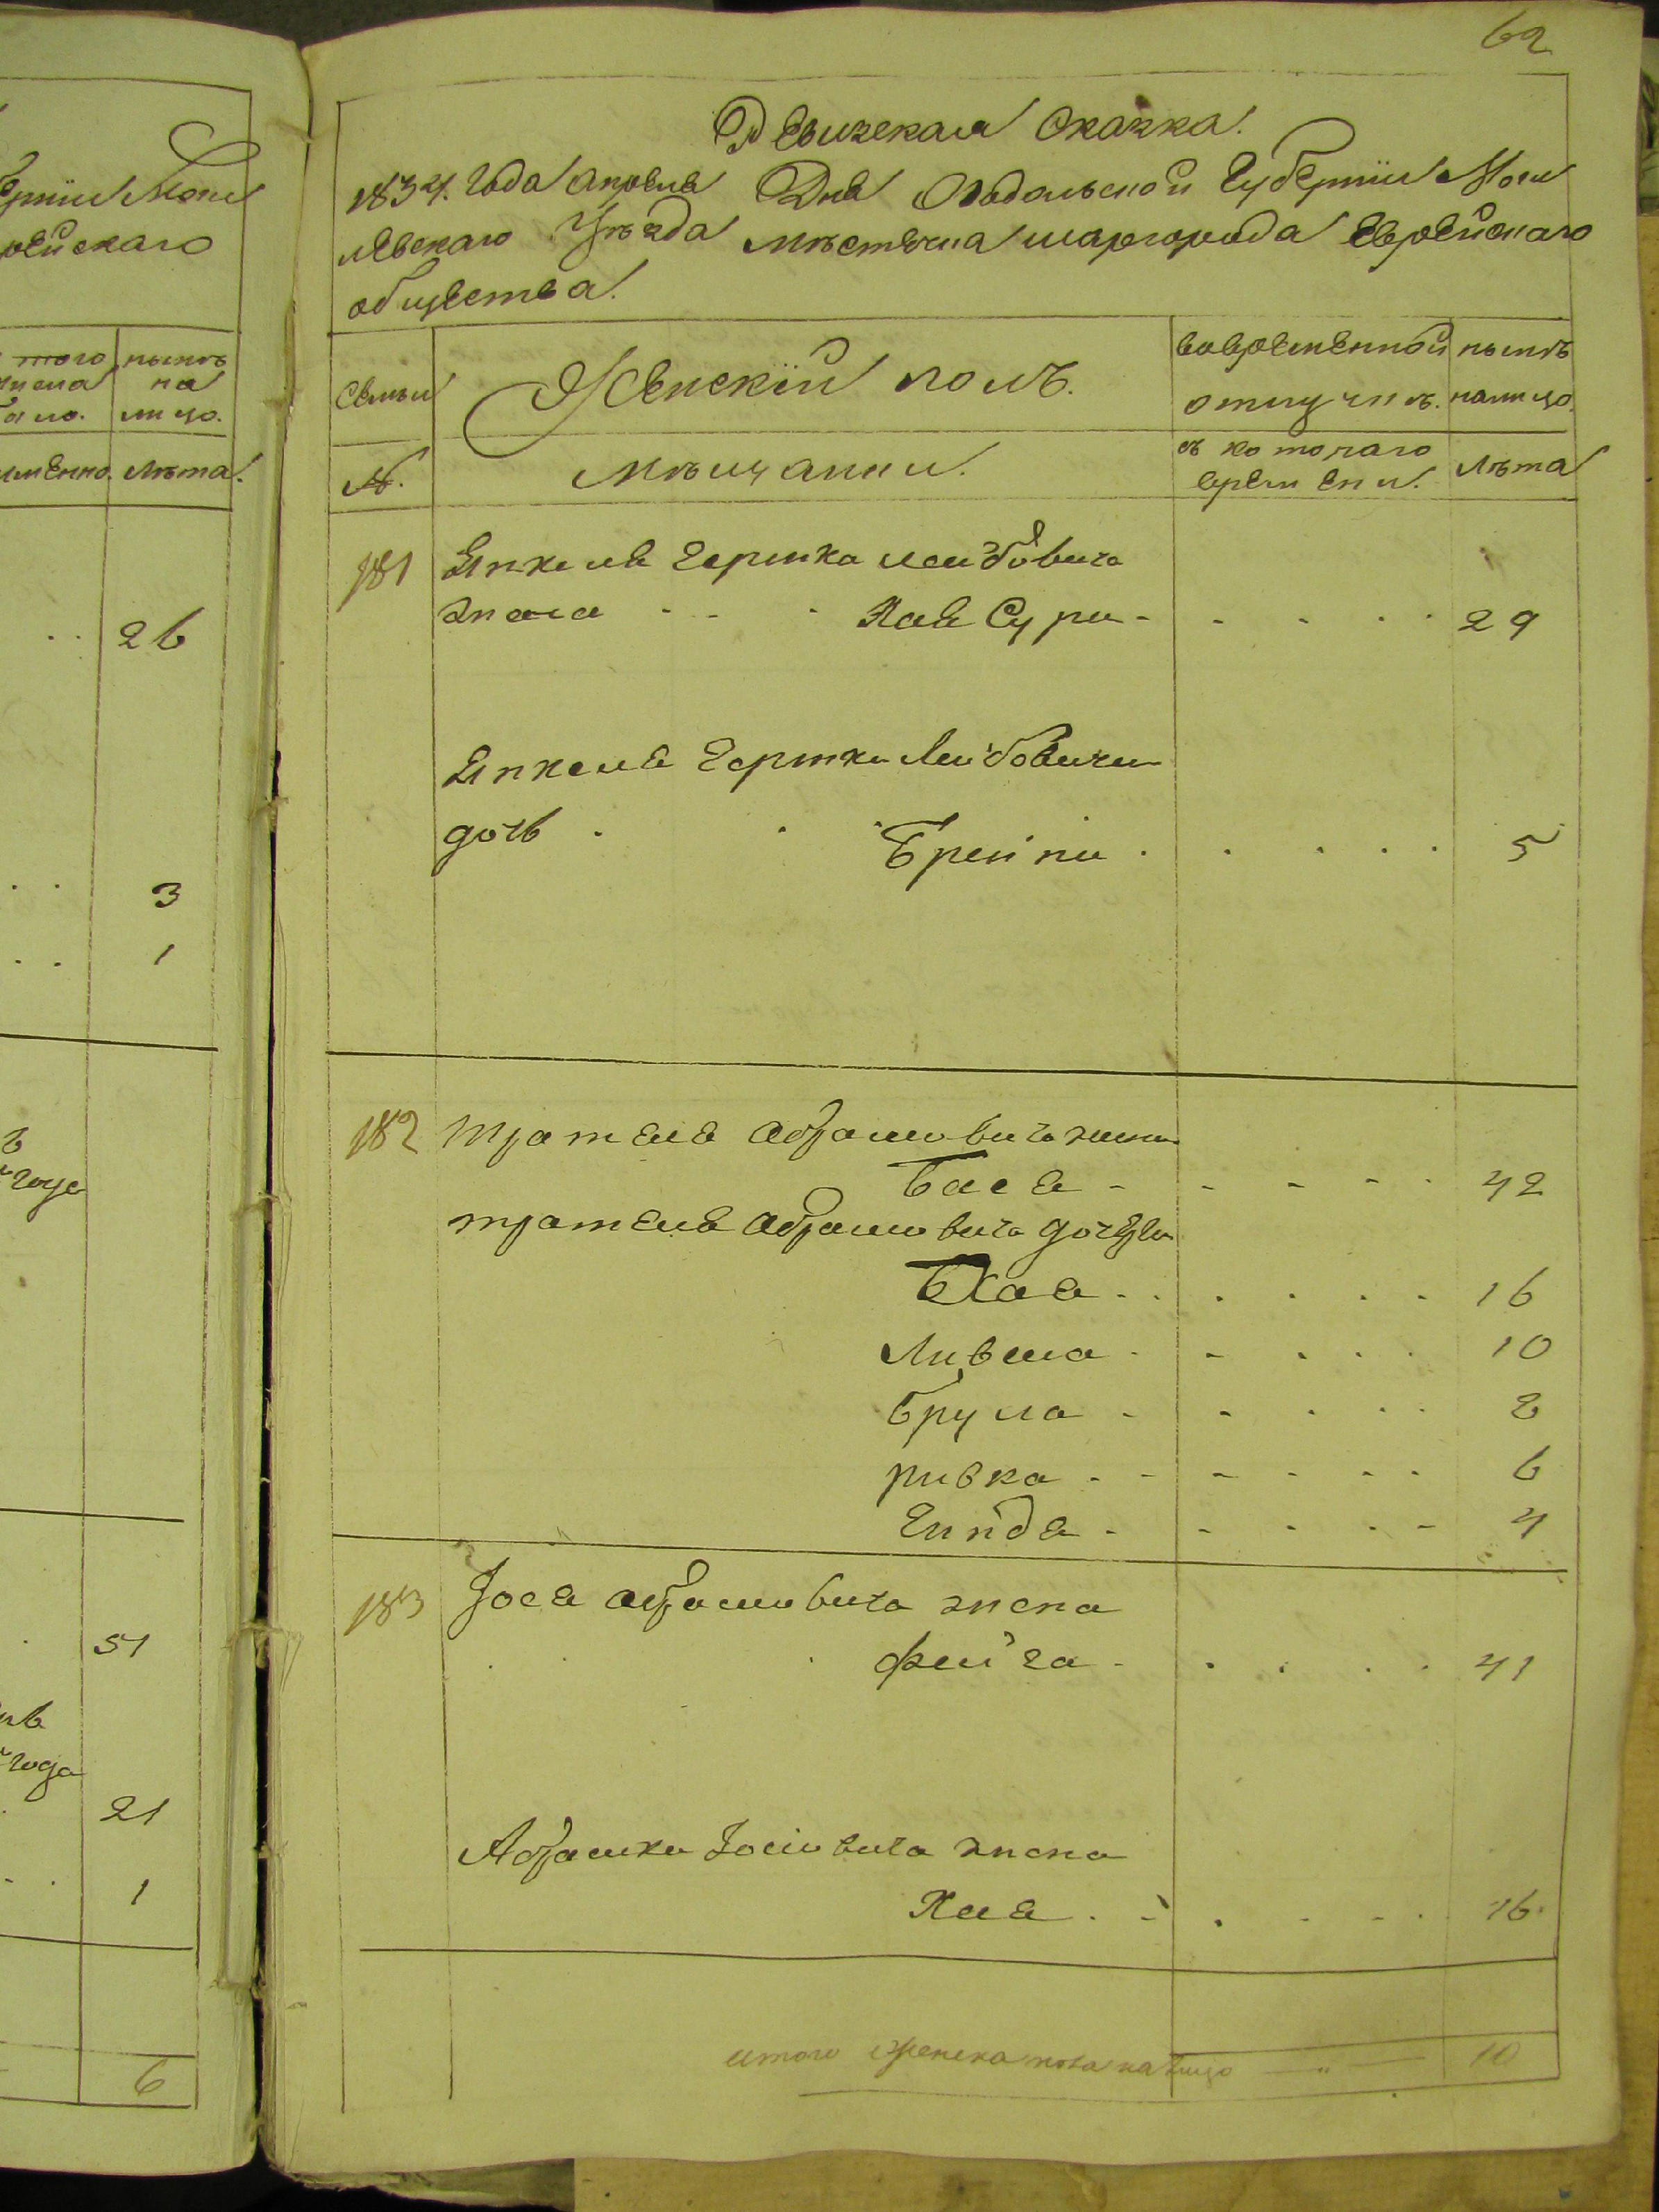 62
Ревизская Сказка.
1834. Года Апреля Дня Подольской Губернии Моги
левского Уѣзда мѣстечка шаргорода Еврейскаго
общества.
Семьи
Женскій полъ.
вовременной
отлучкѣ.
нынѣ
налицо.
№.
мѣщанки.
съ котораго
времени.
лѣта
181
Янкеля Гершка Лейбовича
жена Хая Сура 29
Янкеля Гершки Лейбовича
дочь Брейна 5
182 Трателя Абрамовича жена
Бася 42
трателя Абрамовича дочери
Хая 16
Лившa 10
Брула 8
ривка 6
Гинда 4
183 Іося Абрамовича жена
Фейга 41
Абрамки Іосiовича жена
Хая 16
итого женска пола налицо 10
ерніи Моги
рейскаго
того
числа
нынѣ
на
лицо.
именно. лѣта.
26
3
1
года
51
года
21
1
6